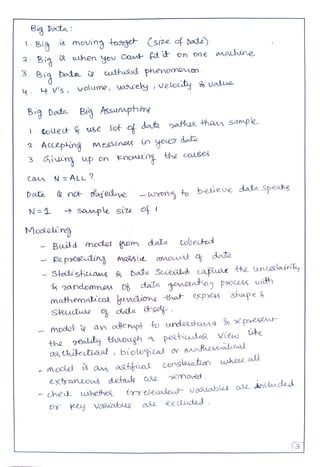 Big Data :
1. Big is moving target (size of Data)
2. Big is when you Can't fit it on one machine
3. Big Data is cultural phenomenon.
4. 4 V's, volume, variety, velocity & value
Big Data Big Assumptions
1. collect & use lot of data rather than sample
2 Accepting messiness in your data
3. Giving up on knowing the causes
Can N = ALL ?
Data is not objective - wrong to believe data speaks
N=1 → sample size of 1
Modeling
- Build model from data collected
- Representing massive amount of data
- Statisticians & Data Scientist capture the uncertainity
& randomness of data generating process with
mathematical functions that express shape &
structure of data itself.
- model is an attempt to understand & represent
the reality through a particular view like
architectural, biological or mathematical
- model is an artifical construction where all
extraneous details are removed.
- check whether irrelevant variables are included
or key variables are excluded.
3